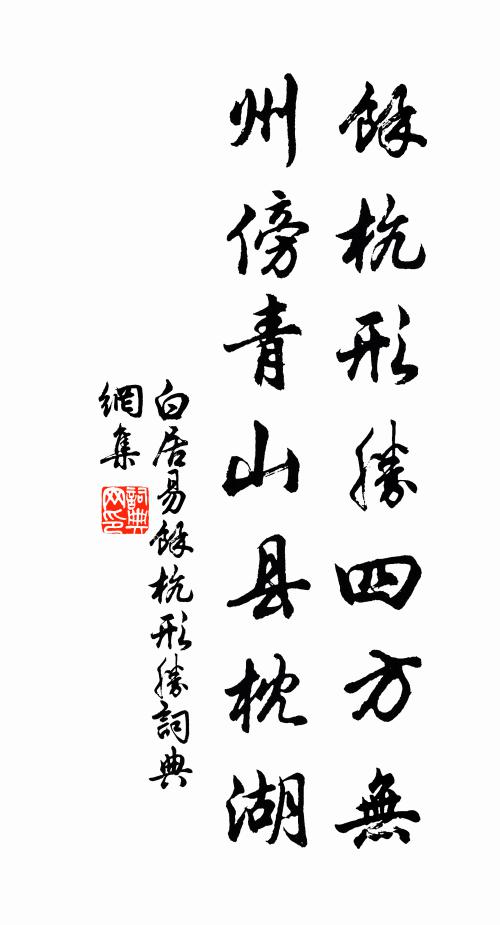 餘杭形勝四方無
州傍青山县枕湖
白居易餘杭形勝詞典
網集
詞典
网印